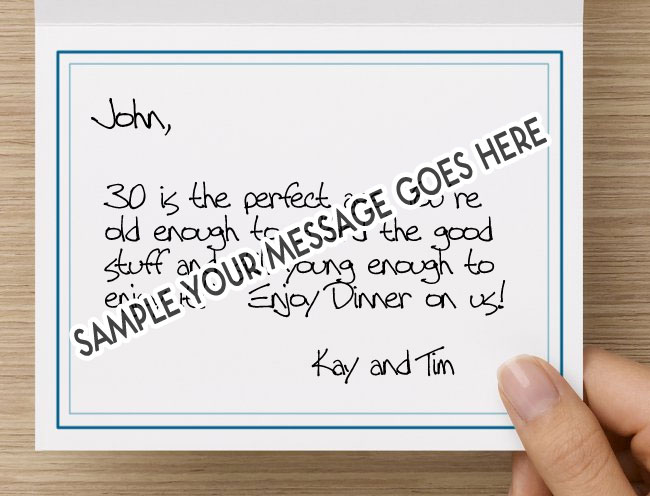 John,
30 is the perfect
old enough to the good
stuff and young enough to
Enjoy Dinner on us!
Kay and Tim
SAMPLE YOUR MESSAGE GOES HERE